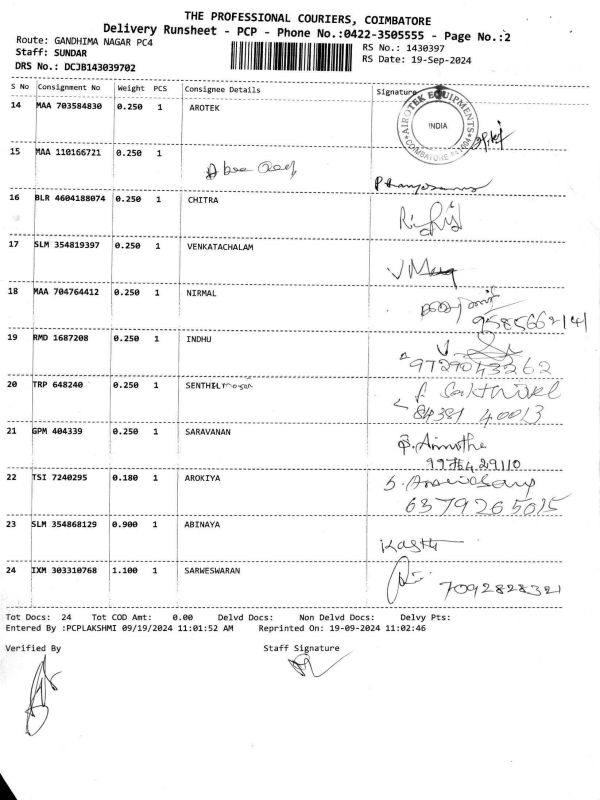 THE PROFESSIONAL COURIERS, COIMBATORE
Delivery Runsheet - PCP - Phone No.:0422-3505555 - Page No.:2
Route: GANDHIMA NAGAR PC4
RS No.: 1430397
Staff: SUNDAR
RS Date: 19-Sep-2024
DRS No.: DCJB143039702
S No Consignment No Weight PCS Consignee Details Signature
14 MAA 703584830 0.250 1 AROTEK
AIROTEK EQUIPMENTS
INDIA
COIMBATORE
15 MAA 110166721 0.250 1
16 BLR 4604188074 0.250 1 CHITRA
17 SLM 354819397 0.250 1 VENKATACHALAM
18 MAA 704764412 0.250 1 NIRMAL
9585662141
19 RMD 1687208 0.250 1 INDHU
9729043262
20 TRP 648240 0.250 1 SENTHIL
84381 40013
21 GPM 404339 0.250 1 SARAVANAN
22 TSI 7240295 0.180 1 AROKIYA
6379265015
23 SLM 354868129 0.900 1 ABINAYA
24 IXM 303310768 1.100 1 SARWESWARAN
7092828321
Tot Docs: 24 Tot COD Amt: 0.00 Delvd Docs: Non Delvd Docs: Delvy Pts:
Entered By :PCPLAKSHMI 09/19/2024 11:01:52 AM Reprinted On: 19-09-2024 11:02:46
Verified By Staff Signature